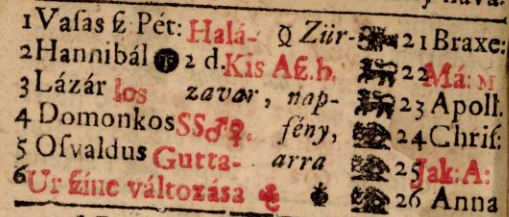 1 Vaſas ſz Pét: Halá- ☿ Zür- 21 Braxe:
2 Hannibál 2 d. Kis Aſz. b. 22 Má: M
3 Lázár los zavar, nap- 23 Apoll.
4 Domonkos SS♂♀. fény, 24 Chriſ:
5 Oſvaldus Gutta- arra 25 Jak: A:
6 Ur ſzine változása 26 Anna